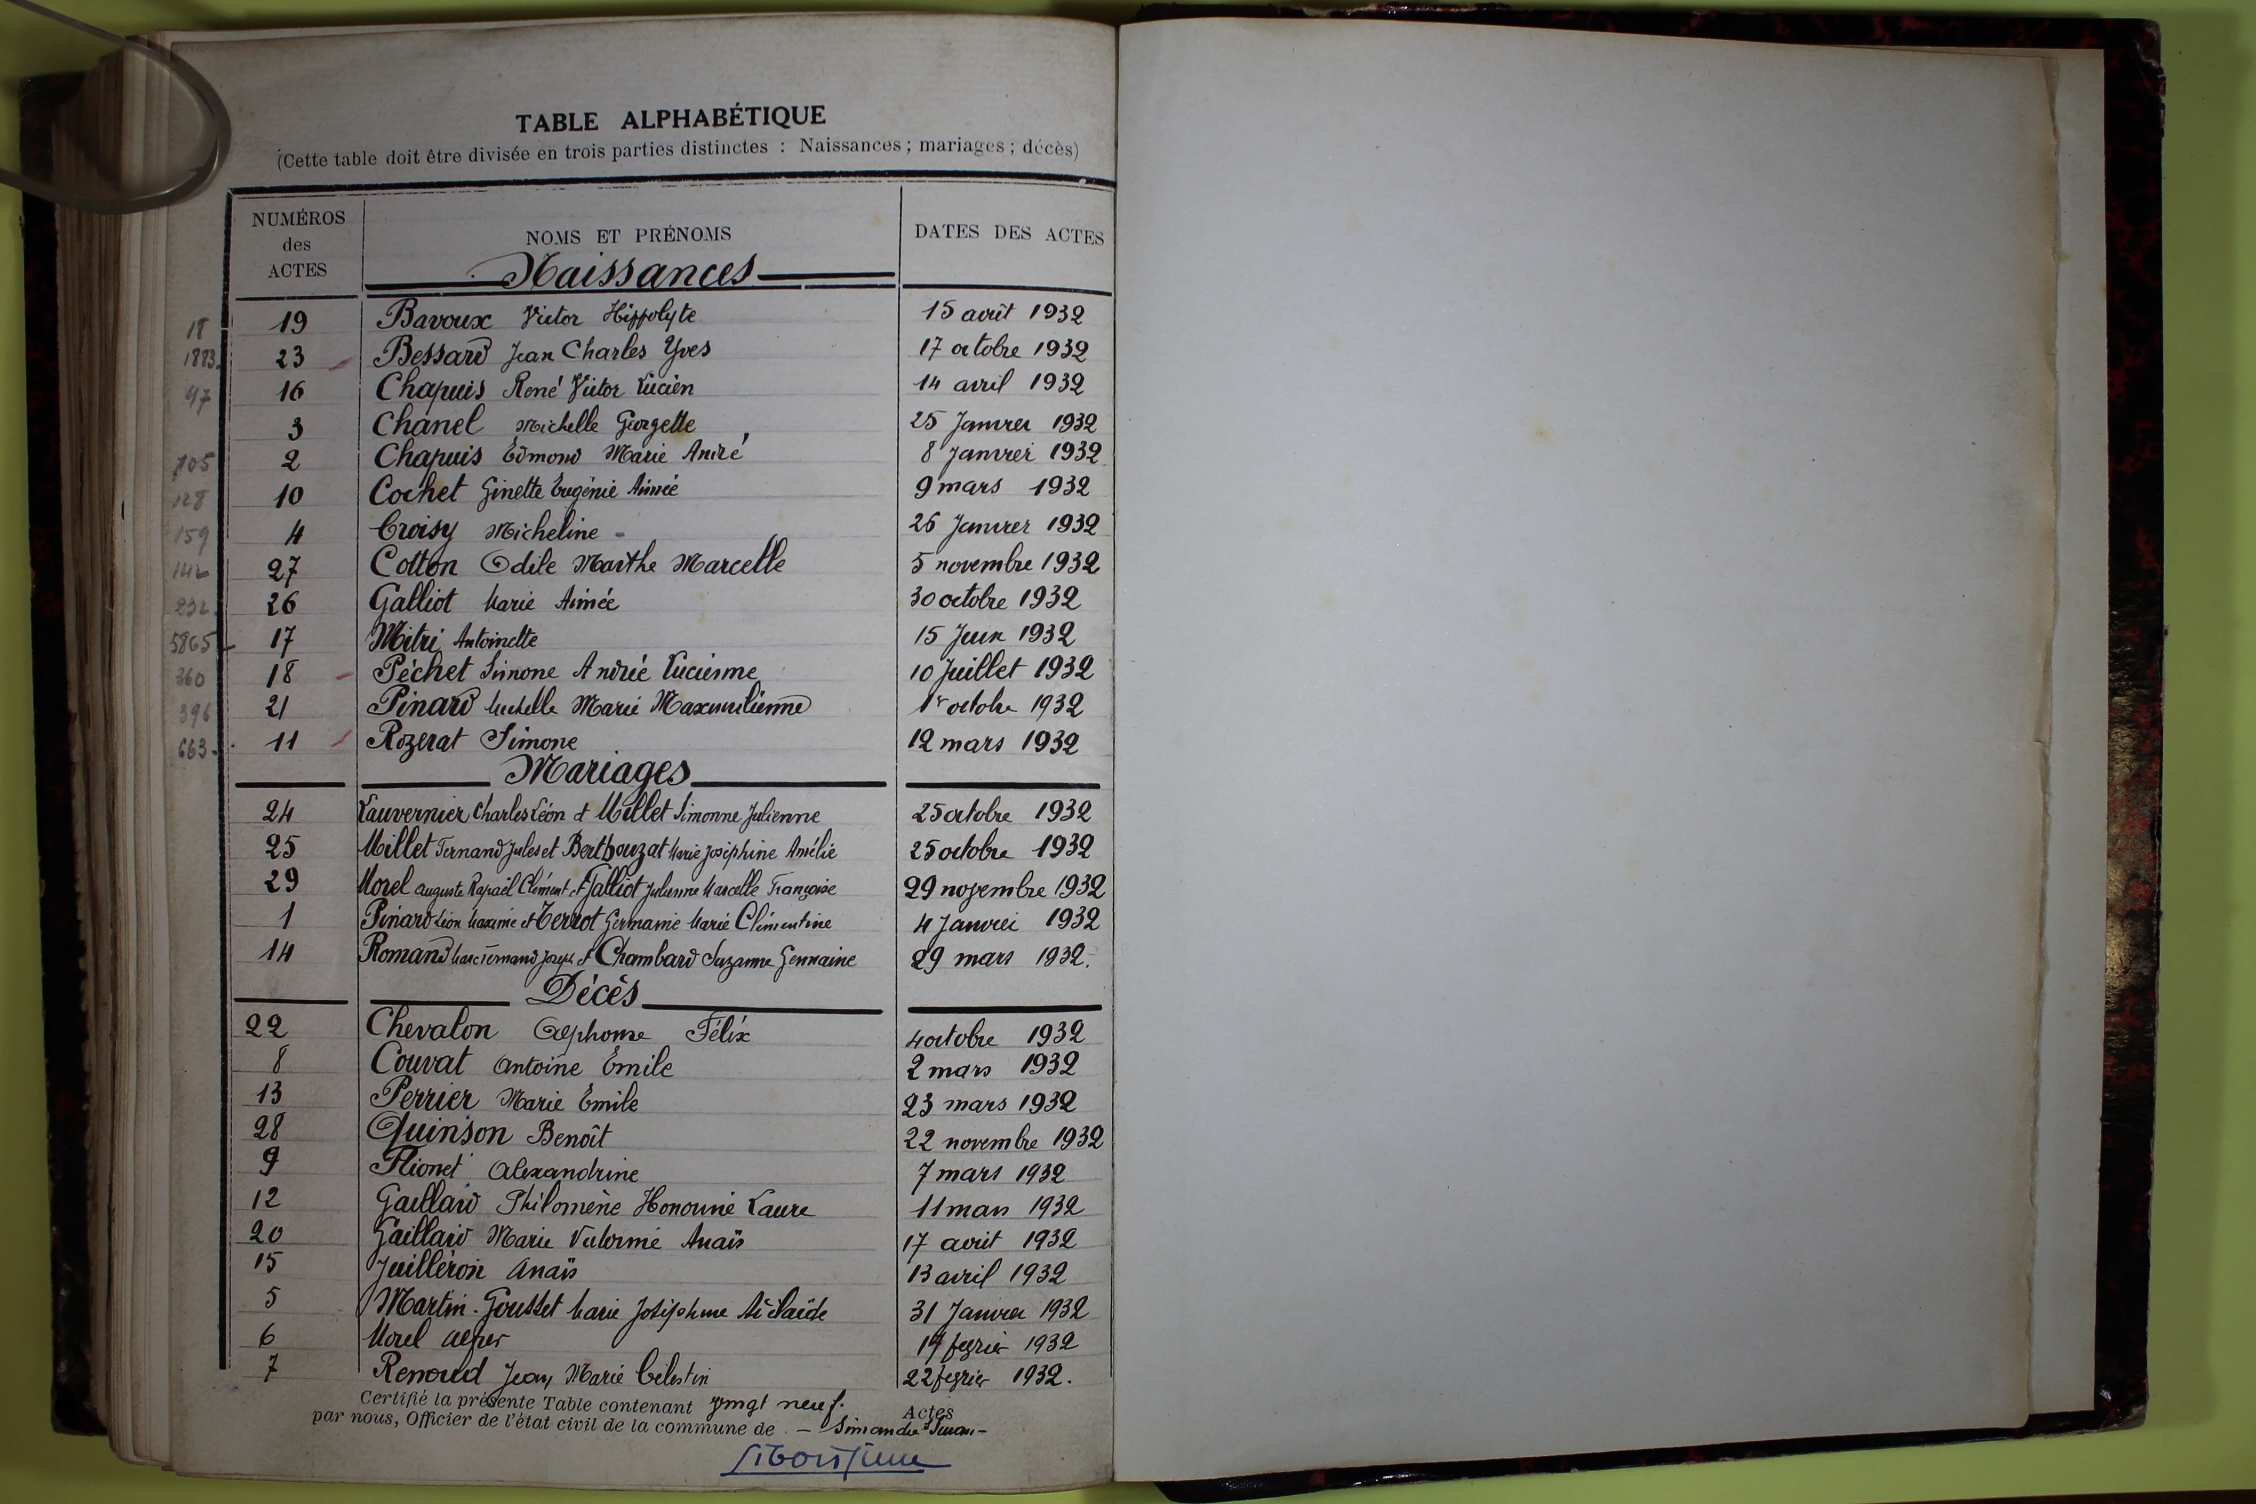 TABLE ALPHABÉTIQUE
(Cette table doit être divisée en trois parties distinctes : Naissances ; mariages ; décès)
NUMÉROS des ACTES NOMS ET PRÉNOMS DATES DES ACTES
Naissances
18 19 Bavoux Victor Hippolyte 15 août 1932
1883 23 Bessard Jean Charles Yves 17 octobre 1932
97 16 Chapuis René Victor Lucien 14 avril 1932
3 Chanel Michelle Georgette 25 Janvier 1932
105 2 Chapuis Edmond Marie André 8 Janvier 1932
128 10 Cochet Ginette Eugénie Aimée 9 mars 1932
159 4 Croisy Micheline 26 Janvier 1932
142 27 Cotton Odile Marthe Marcelle 5 novembre 1932
232 26 Galliot Marie Aimée 30 octobre 1932
5865 17 Mitri Antoinette 15 Juin 1932
360 18 Péchet Simone Andrée Lucienne 10 Juillet 1932
396 21 Pinard Michelle Marie Maximilienne 1r octobre 1932
663 11 Rozerat Simone 12 mars 1932
Mariages
24 Lauvernier Charles Léon et Millet Simonne Julienne 25 octobre 1932
25 Millet Fernand Jules et Berthouzat Marie Joséphine Amélie 25 octobre 1932
29 Morel Auguste Rapaël Clément et Galliot Julienne Marcelle Françoise 29 novembre 1932
1 Pinard Léon Maxime et Terrot Germaine Marie Clémentine 4 Janvier 1932
14 Romand Marc Fernand Joseph et Chambard Suzanne Germaine 29 mars 1932.
Décès
22 Chevalon Alphonse Félix 4 octobre 1932
8 Couvat Antoine Émile 2 mars 1932
13 Perrier Marie Émile 23 mars 1932
28 Quinson Benoît 22 novembre 1932
9 Alexandrine 7 mars 1932
12 Gaillard Philomène Honorine Laure 11 mars 1932
20 Gaillard Marie Victorine Anaïs 17 août 1932
15 Juilléron Anaïs 13 avril 1932
5 Martin-Goustet Marie Joséphine Adélaïde 31 Janvier 1932
6 Morel 19 février 1932
7 Renoud Jean Marie Célestin 22 février 1932.
Certifié la présente Table contenant vingt neuf. Actes
par nous, Officier de l'état civil de la commune de - Simandre s/ Suran -